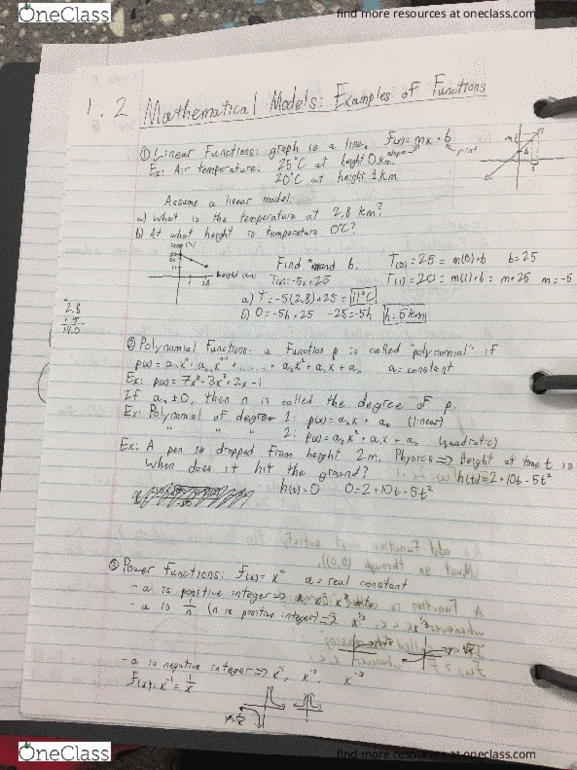 OneClass
find more resources at oneclass.com
1.2 Mathematical Models: Examples of Functions
① Linear Functions: graph is a line. F(x) = mx + b
slope
Ex: Air temperature: 25°C at height 0km
20°C at height 1km
Assume a linear model.
a) What is the temperature at 2.8 km?
b) At what height is temperature 0°C?
Find m and b.
T(0) = 25 = m(0)+b b = 25
T(h) = -5x+25
T(1) = 20 = m(1)+b = m+25 m = -5
a) T = -5(2.8)+25 = 11°C
b) 0 = -5h+25 -25 = -5h h = 5km
2.8
14.0
② Polynomial Functions: a Function p is called "polynomial" if
a = constant
Ex: p(x) = 7x³-3x²+2x-1
If aₙ ≠ 0, then n is called the degree of p.
Ex: Polynomial of degree 1: p(x) = a₁x + a₀ (linear)
" " 2: p(x) = a₂x² + a₁x + a₀ (quadratic)
Ex: A pen is dropped from height 2m. Physics => Height at time t is
When does it hit the ground? h(t) = 2+10t-5t²
h(t) = 0 0 = 2+10t-5t²
③ Power Functions: f(x) = xᵃ a = real constant
- a is positive integer =>
- a is 1/n (n is positive integer) =>
- a is negative integer => x⁻¹, x⁻², x⁻³
F(x) = x⁻¹ = 1/x
OneClass
find more resources at oneclass.com